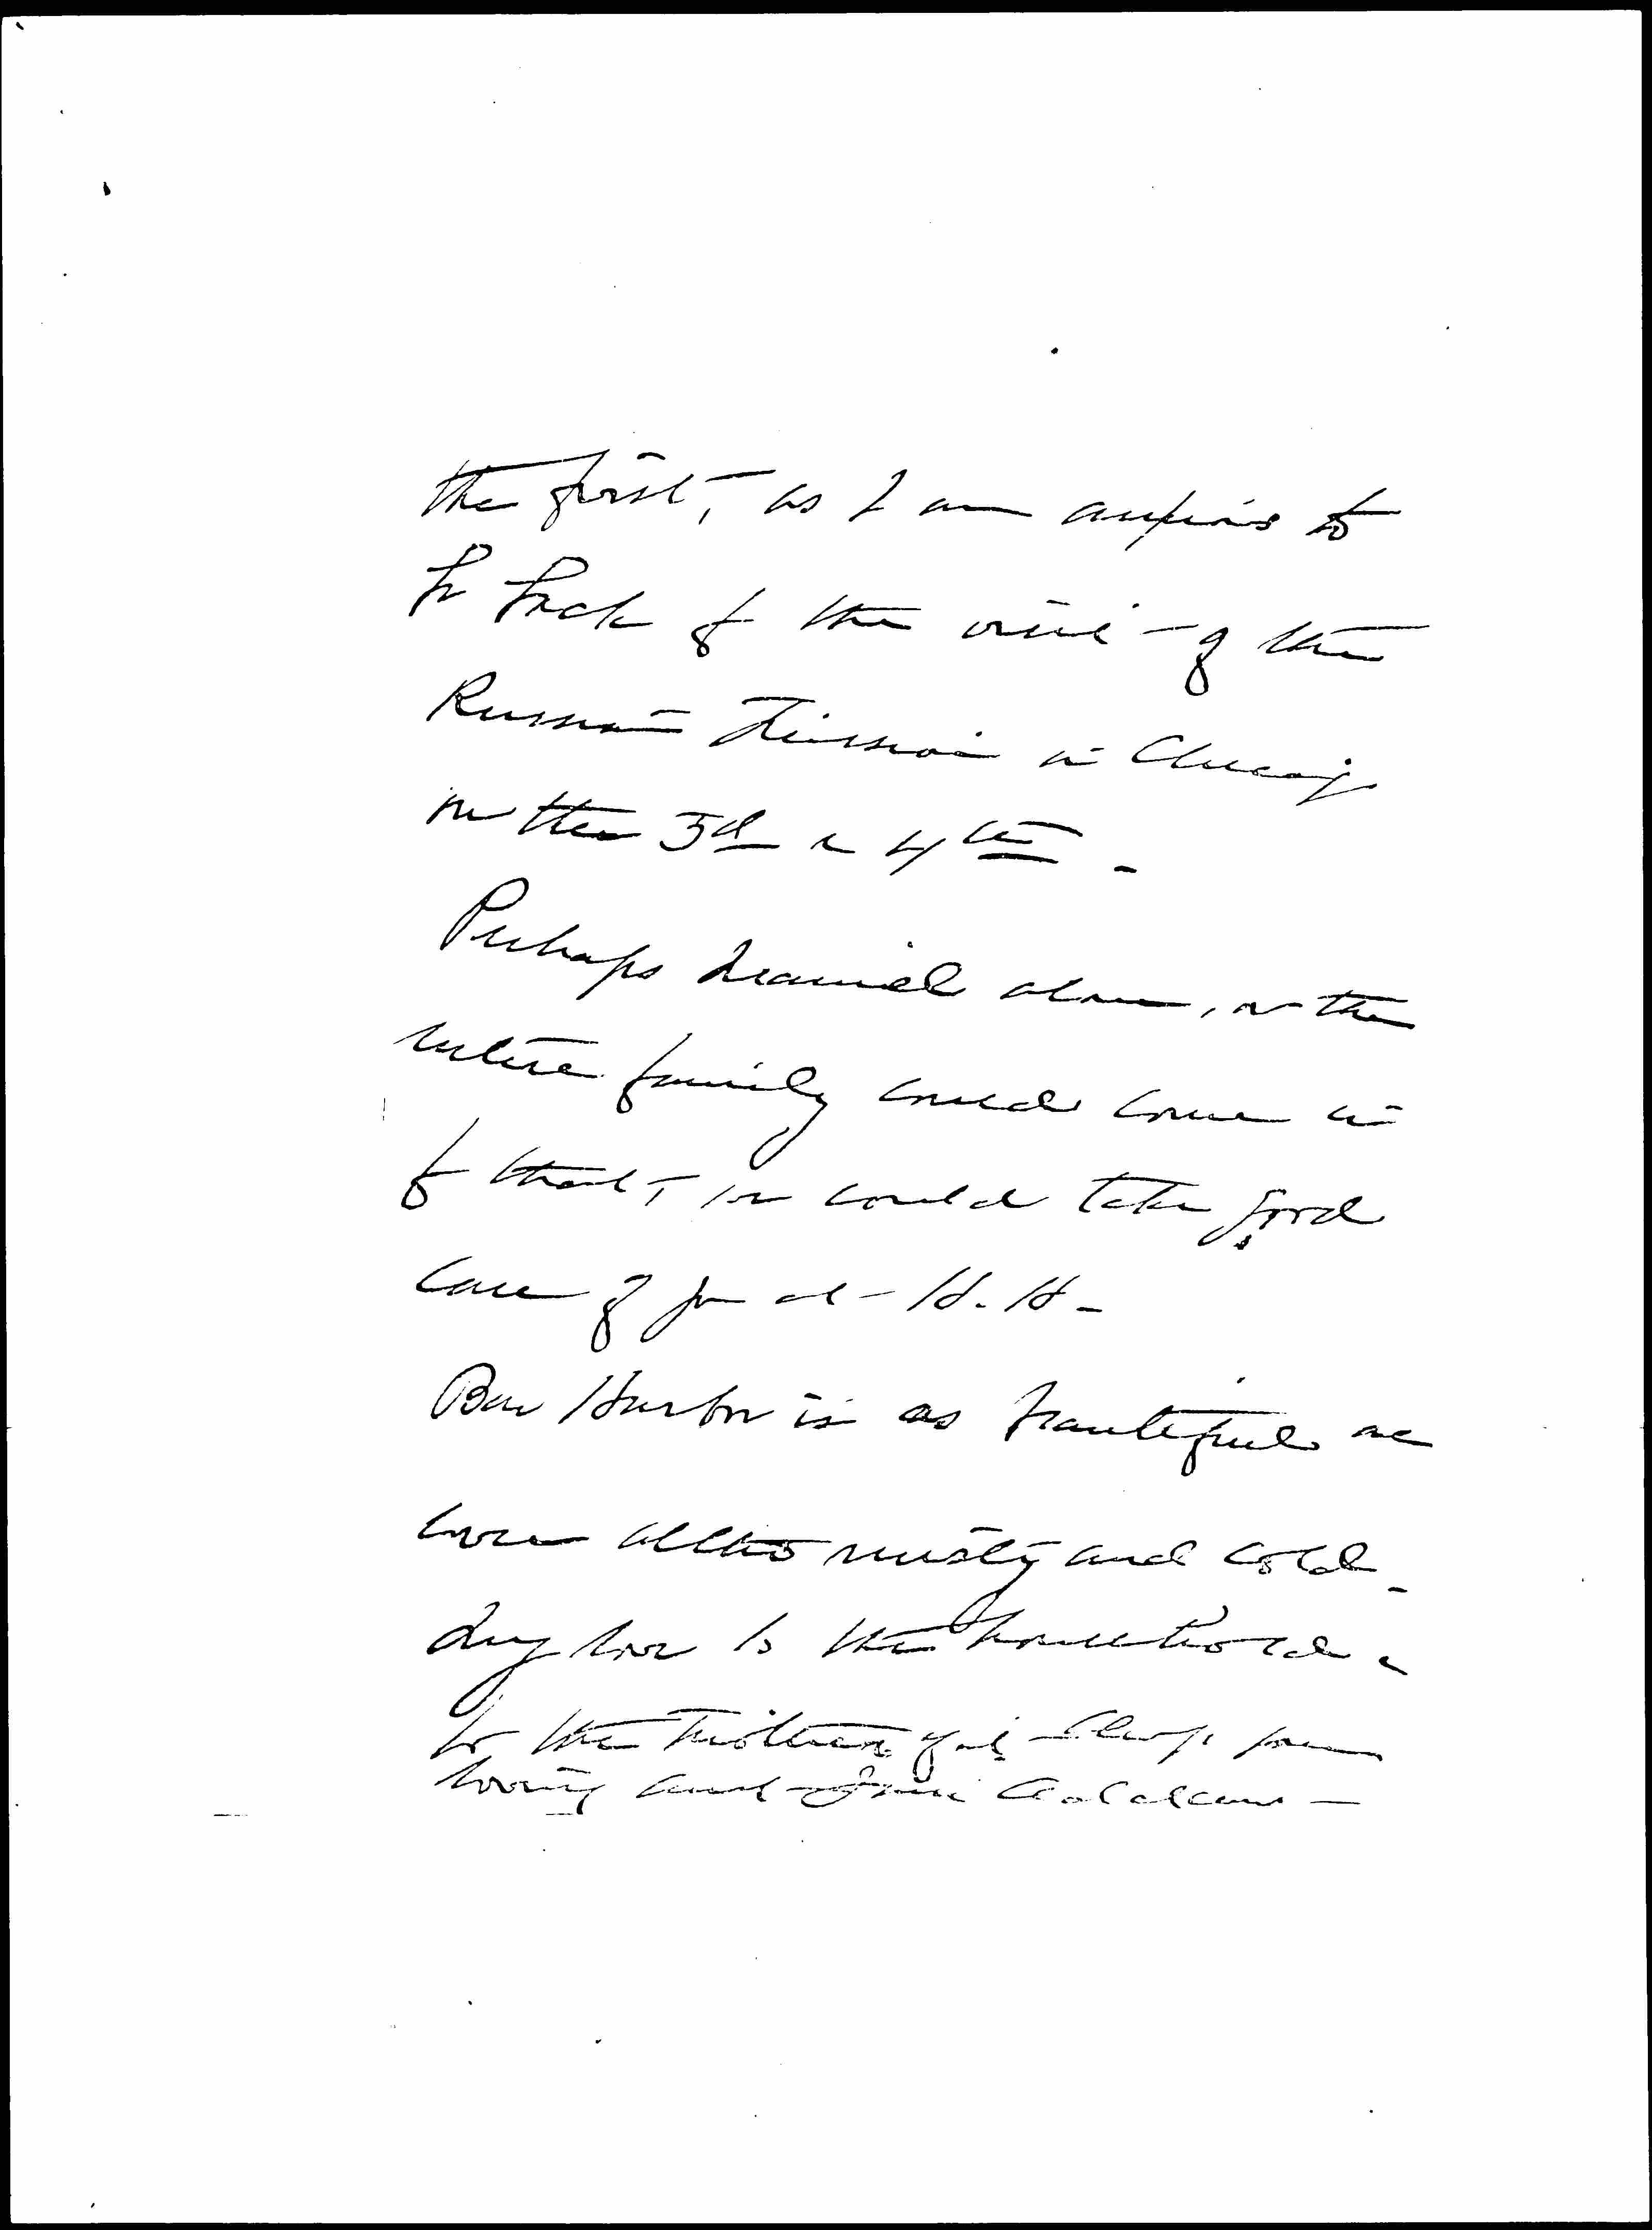 the first, as I am anxious to
be back for the visit of the
Russian Mission in Chicago
on the 3d & 4th -
Perhaps alone, or the
entire family could come in
for that, we could take good
care of you at H. H. -
Bar Harbor is as beautiful as
ever altho misty and cold -
My love to the household &
to the Mother girl - Always your
loving aunt Jane Addams -